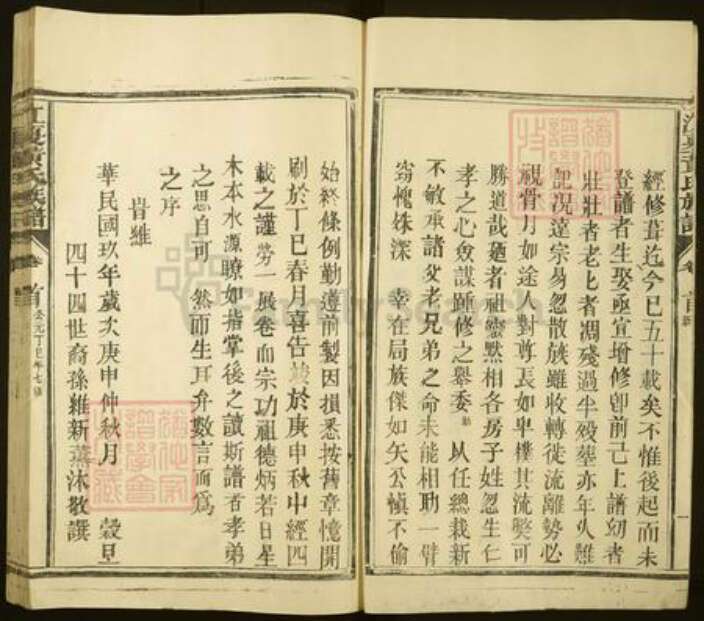 經修葺迄今已五十載矣不惟後起而未
登譜者生娶亟宜增修卽前已上譜幼者
壯壯者老七者凋殘過半歿塟亦年久難
記况達宗易忽散族難收轉徙流離勢必
視骨月如途人對尊長如早樸其流獘可
勝道哉廼者祖靈默相各房子姓忽生仁
孝之心僉謀踵修之舉委 以任總裁新
不敏承諸父老兄弟之命未能相助一臂
窃愧姝深 幸在局族傑如矢公慎不偷
始終條例勤遵前製因損悉按舊章憶開
刷於丁巳春月喜告竣於庚申秋中經四
載之謹劳一展卷而宗功祖德炳若日星
木本水源瞭如指掌後之讀斯譜者孝弟
之思自可 然而生耳弁數言而爲
之序
旹維
華民國玖年歲次庚申仲秋月 穀旦
四十四世裔孫維新薰沐敬譔
江夏黄氏族譜
卷
首
FamilySearch